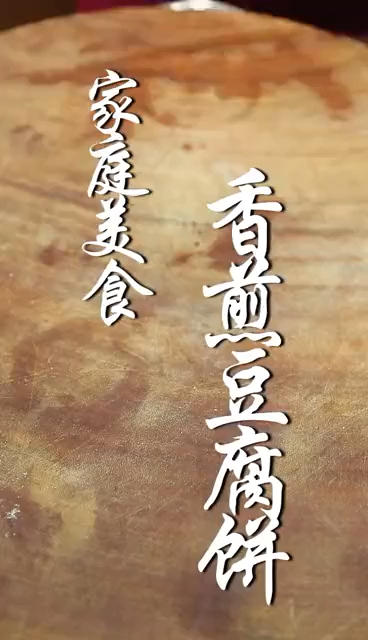 香煎豆腐餅
家庭美食